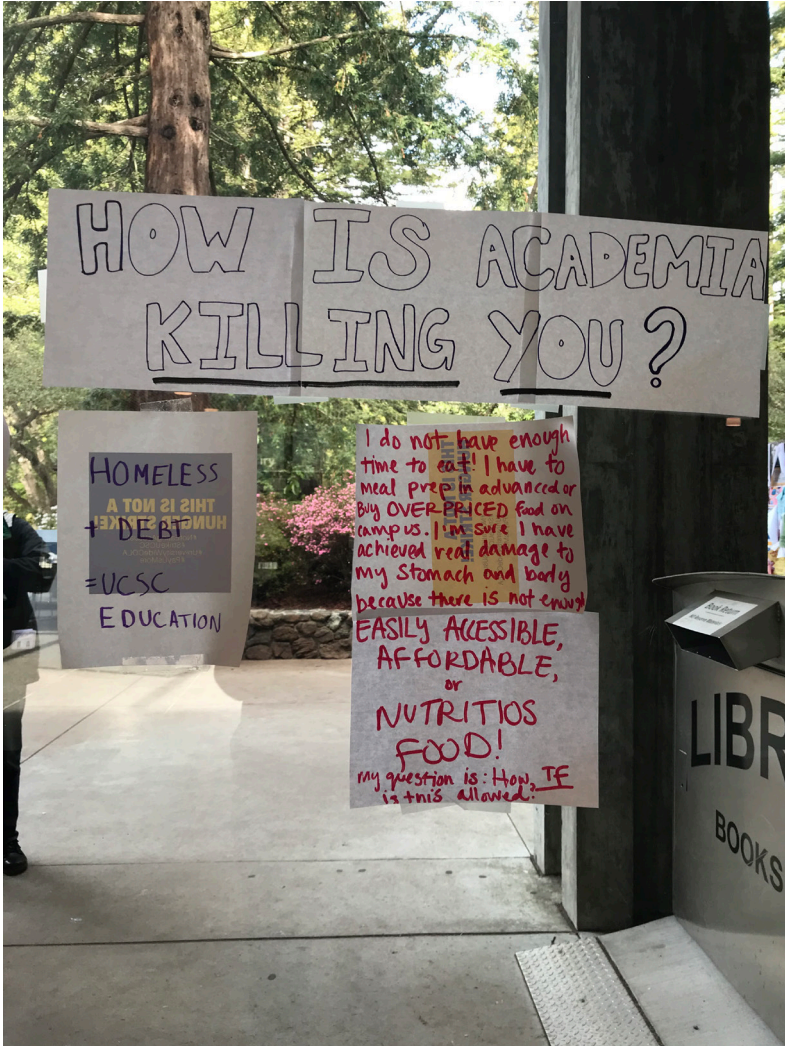 HOW IS ACADEMIA
KILLING YOU?
HOMELESS
+ DEBT
=UCSC
EDUCATION
THIS IS NOT A
HUNGER STRIKE!
I do not have enough
time to eat! I have to
meal prep in advanced or
Buy OVERPRICED food on
campus. I'm sure I have
achieved real damage to
my stomach and body
because there is not enough
EASILY ACCESSIBLE,
AFFORDABLE,
or
NUTRITIOS
FOOD!
my question is: How, TF
is this allowed?
Book Return
LIBR
BOOKS